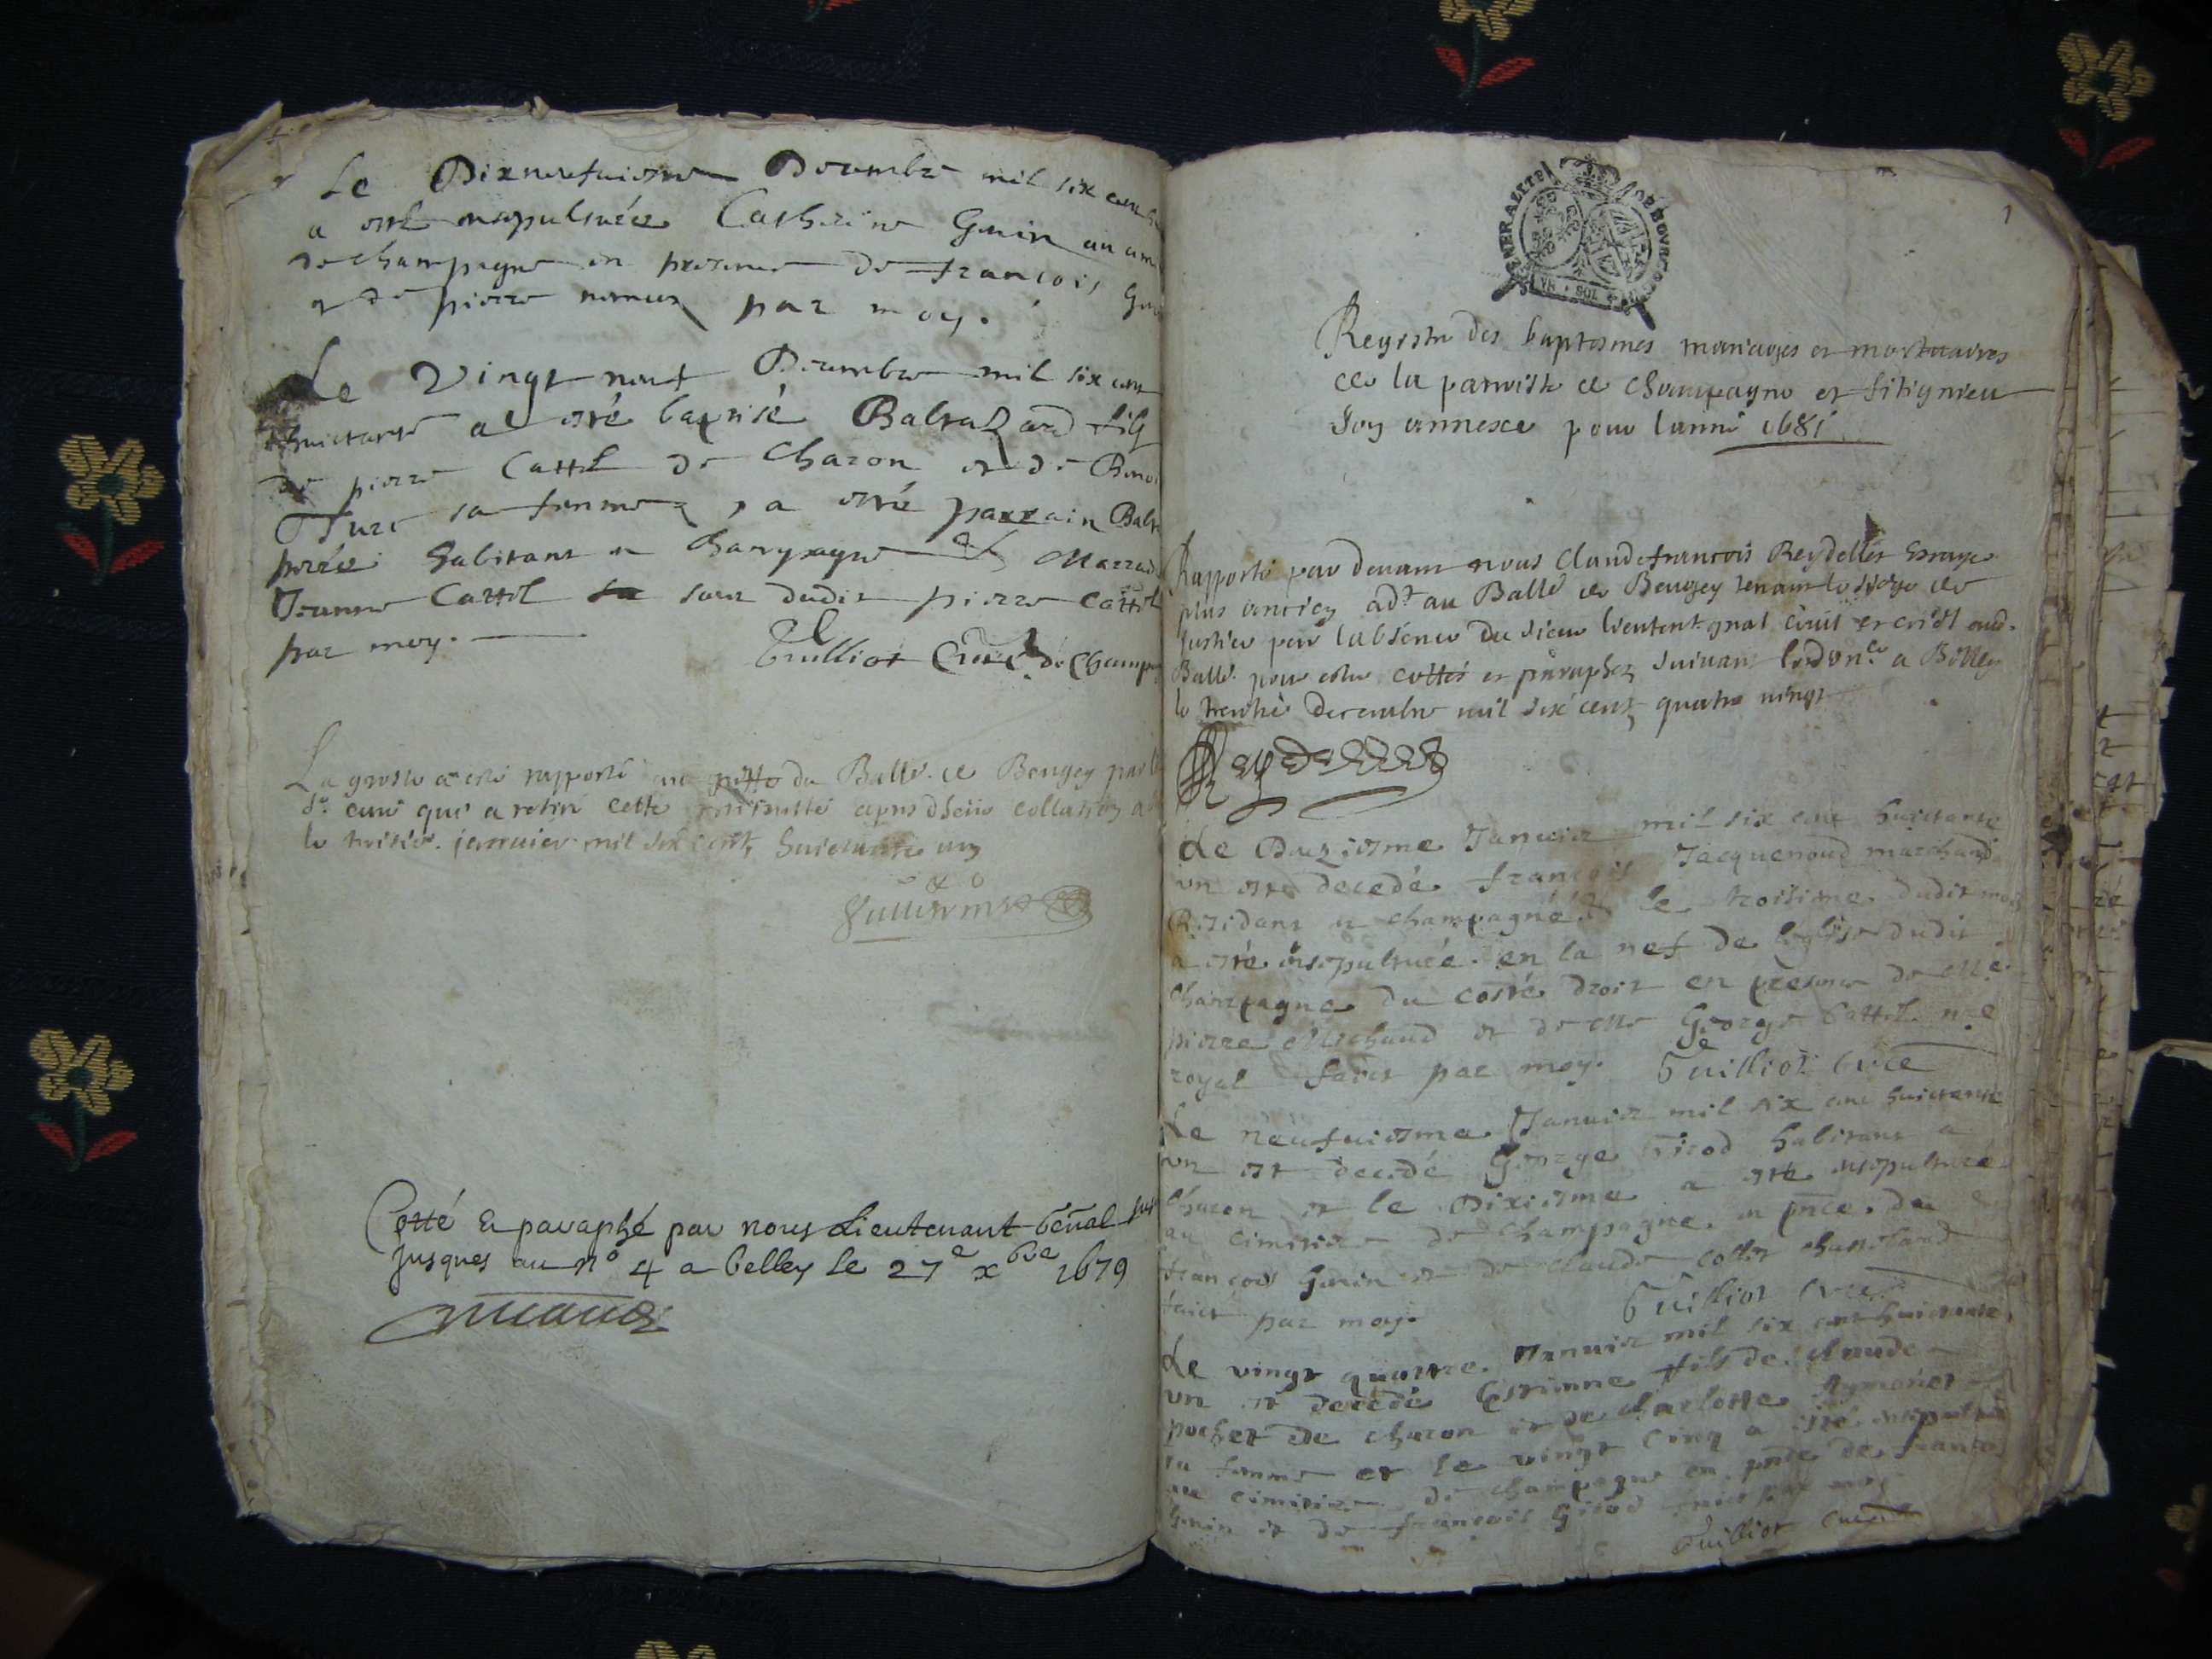 Le Dixneufuiesme Decembre mil six cent
a esté ensepulturée Catherine Guin au
de champagne en presence de françois
& de pierre par moy.
Le Vingt neuf Decembre mil six cent
huictante a esté baptisé Baltazard fils
de pierre Cattel de Charon et de
sa femme, a esté parrain
habitant a Champagne et
Jeanne Cattel seur dudit pierre Cattel
par moy.
Guilliot Curé de Champ
La grosse a esté rapporté au greffe du Balle. de Beugey par
Sr. curé qui a retiré cette minutte apres dheue collation
le troisie. januier mil six cent huictante un
Cotté & paraphé par nous Lieutenant Genal
Jusques au no 4 a belley le 27e xbre 1679
1
GENERALITE DE BOURGOG
VN SOL
Regystre des baptesmes mariages et mortuaires
de la paroisse de Champagne et fitignieu
Son annexe pour lanné 1681
Rapporté par deuant nous Claude francois Reydellet
plus ancien adt. au Balle. de Beugey tenant le siege de
Justice pour labsence du sieur lieutent. gnal ciuil et crimel aud.
Balle. pour estre cottés et paraphez suiuant lordonce. a Belley
le trentie Decembre mil six cent quatre vingt
Reydellet
Le Deuziesme Januier mil six cent huictante
vn est decedé francois Jacquenoud marchand
Residant a champagne & le troisime dudit mois
a esté ensepulturé en la nef de leglise dudit
champagne du costé droit en presence de Me
pierre Michaud et de Me George Cattel nre
royal faict par moy. Guilliot Curé
Le neufuiesme Januier mil six cent huictante
vn est decedé George Nicod habitant a
Charon et le Dixiesme a esté ensepulturé
au cimitiere de champagne en pnce. de
francois Guin et de claude
faict par moy. Guilliot Curé
Le vingt quattre Januier mil six cent huictante
vn est decedé Estienne fils de claude
pochet de charon et de charlotte Aymonet
sa femme et le vingt cinq a esté ensepulturé
au cimitiere de champagne en pnce de
Guin et de francois Nicod faict par moy
Guilliot curé